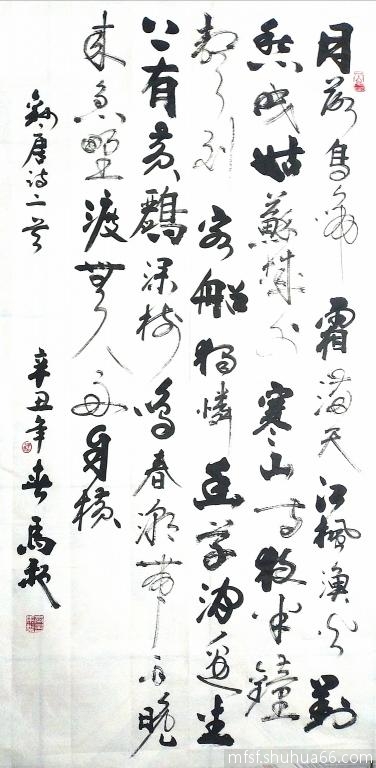 月落烏啼霜滿天江楓漁火對
愁眠姑蘇城外寒山寺夜半鐘
聲到客船獨憐幽草澗邊生
上有黃鸝深樹鳴春潮帶雨晚
來急野渡無人舟自橫
錄唐詩二首 辛丑年春馬
mfsf.shuhua66.com